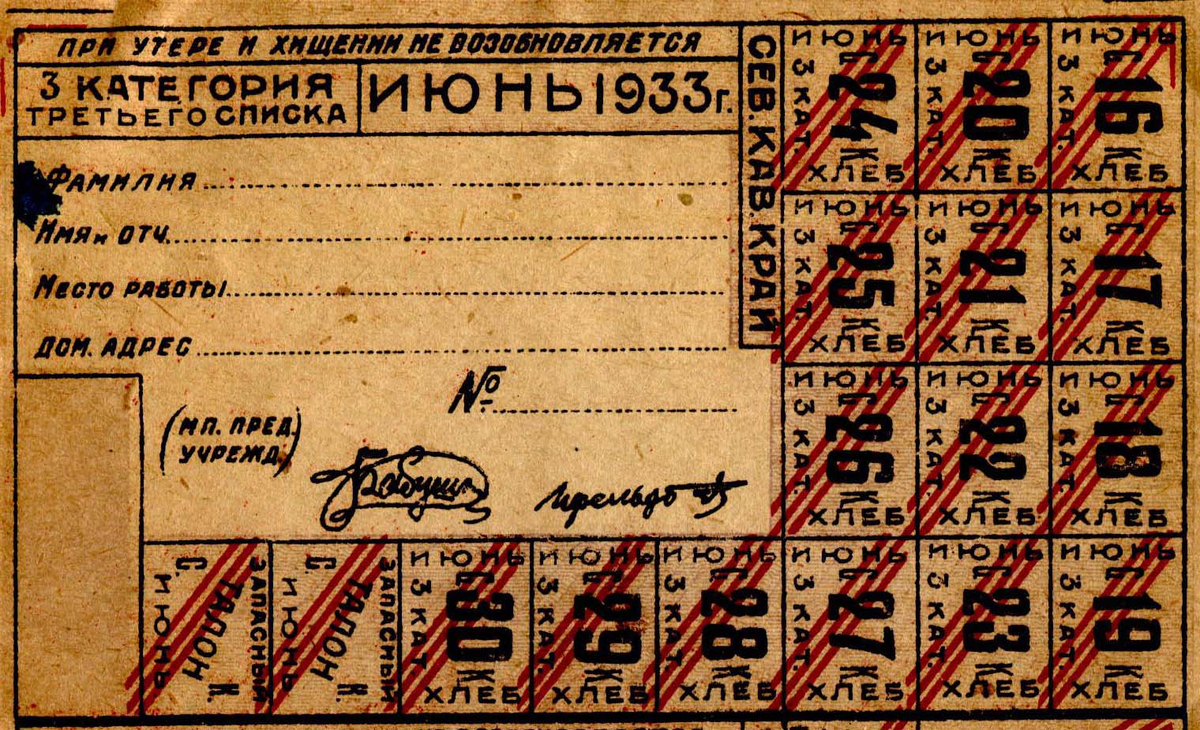 ПРИ УТЕРЕ И ХИЩЕНИИ НЕ ВОЗОБНОВЛЯЕТСЯ
3 КАТЕГОРИЯ
ТРЕТЬЕГО СПИСКА
ИЮНЬ 1933 г.
ФАМИЛИЯ
ИМЯ и ОТЧ.
МЕСТО РАБОТЫ
ДОМ. АДРЕС
№
(МП. ПРЕД.
УЧРЕЖД.)
СЕВ. КАВ. КРАЙ
ИЮНЬ
3 КАТ.
С 24 К
ХЛЕБ
ИЮНЬ
3 КАТ.
С 20 К
ХЛЕБ
ИЮНЬ
3 КАТ.
С 16 К
ХЛЕБ
ИЮНЬ
3 КАТ.
С 25 К
ХЛЕБ
ИЮНЬ
3 КАТ.
С 21 К
ХЛЕБ
ИЮНЬ
3 КАТ.
С 17 К
ХЛЕБ
ИЮНЬ
3 КАТ.
С 26 К
ХЛЕБ
ИЮНЬ
3 КАТ.
С 22 К
ХЛЕБ
ИЮНЬ
3 КАТ.
С 18 К
ХЛЕБ
ЗАПАСНЫЙ
ТАЛОН
С. К.
ИЮНЬ
ЗАПАСНЫЙ
ТАЛОН
С. К.
ИЮНЬ
ИЮНЬ
3 КАТ.
С 30 К
ХЛЕБ
ИЮНЬ
3 КАТ.
С 29 К
ХЛЕБ
ИЮНЬ
3 КАТ.
С 28 К
ХЛЕБ
ИЮНЬ
3 КАТ.
С 27 К
ХЛЕБ
ИЮНЬ
3 КАТ.
С 23 К
ХЛЕБ
ИЮНЬ
3 КАТ.
С 19 К
ХЛЕБ